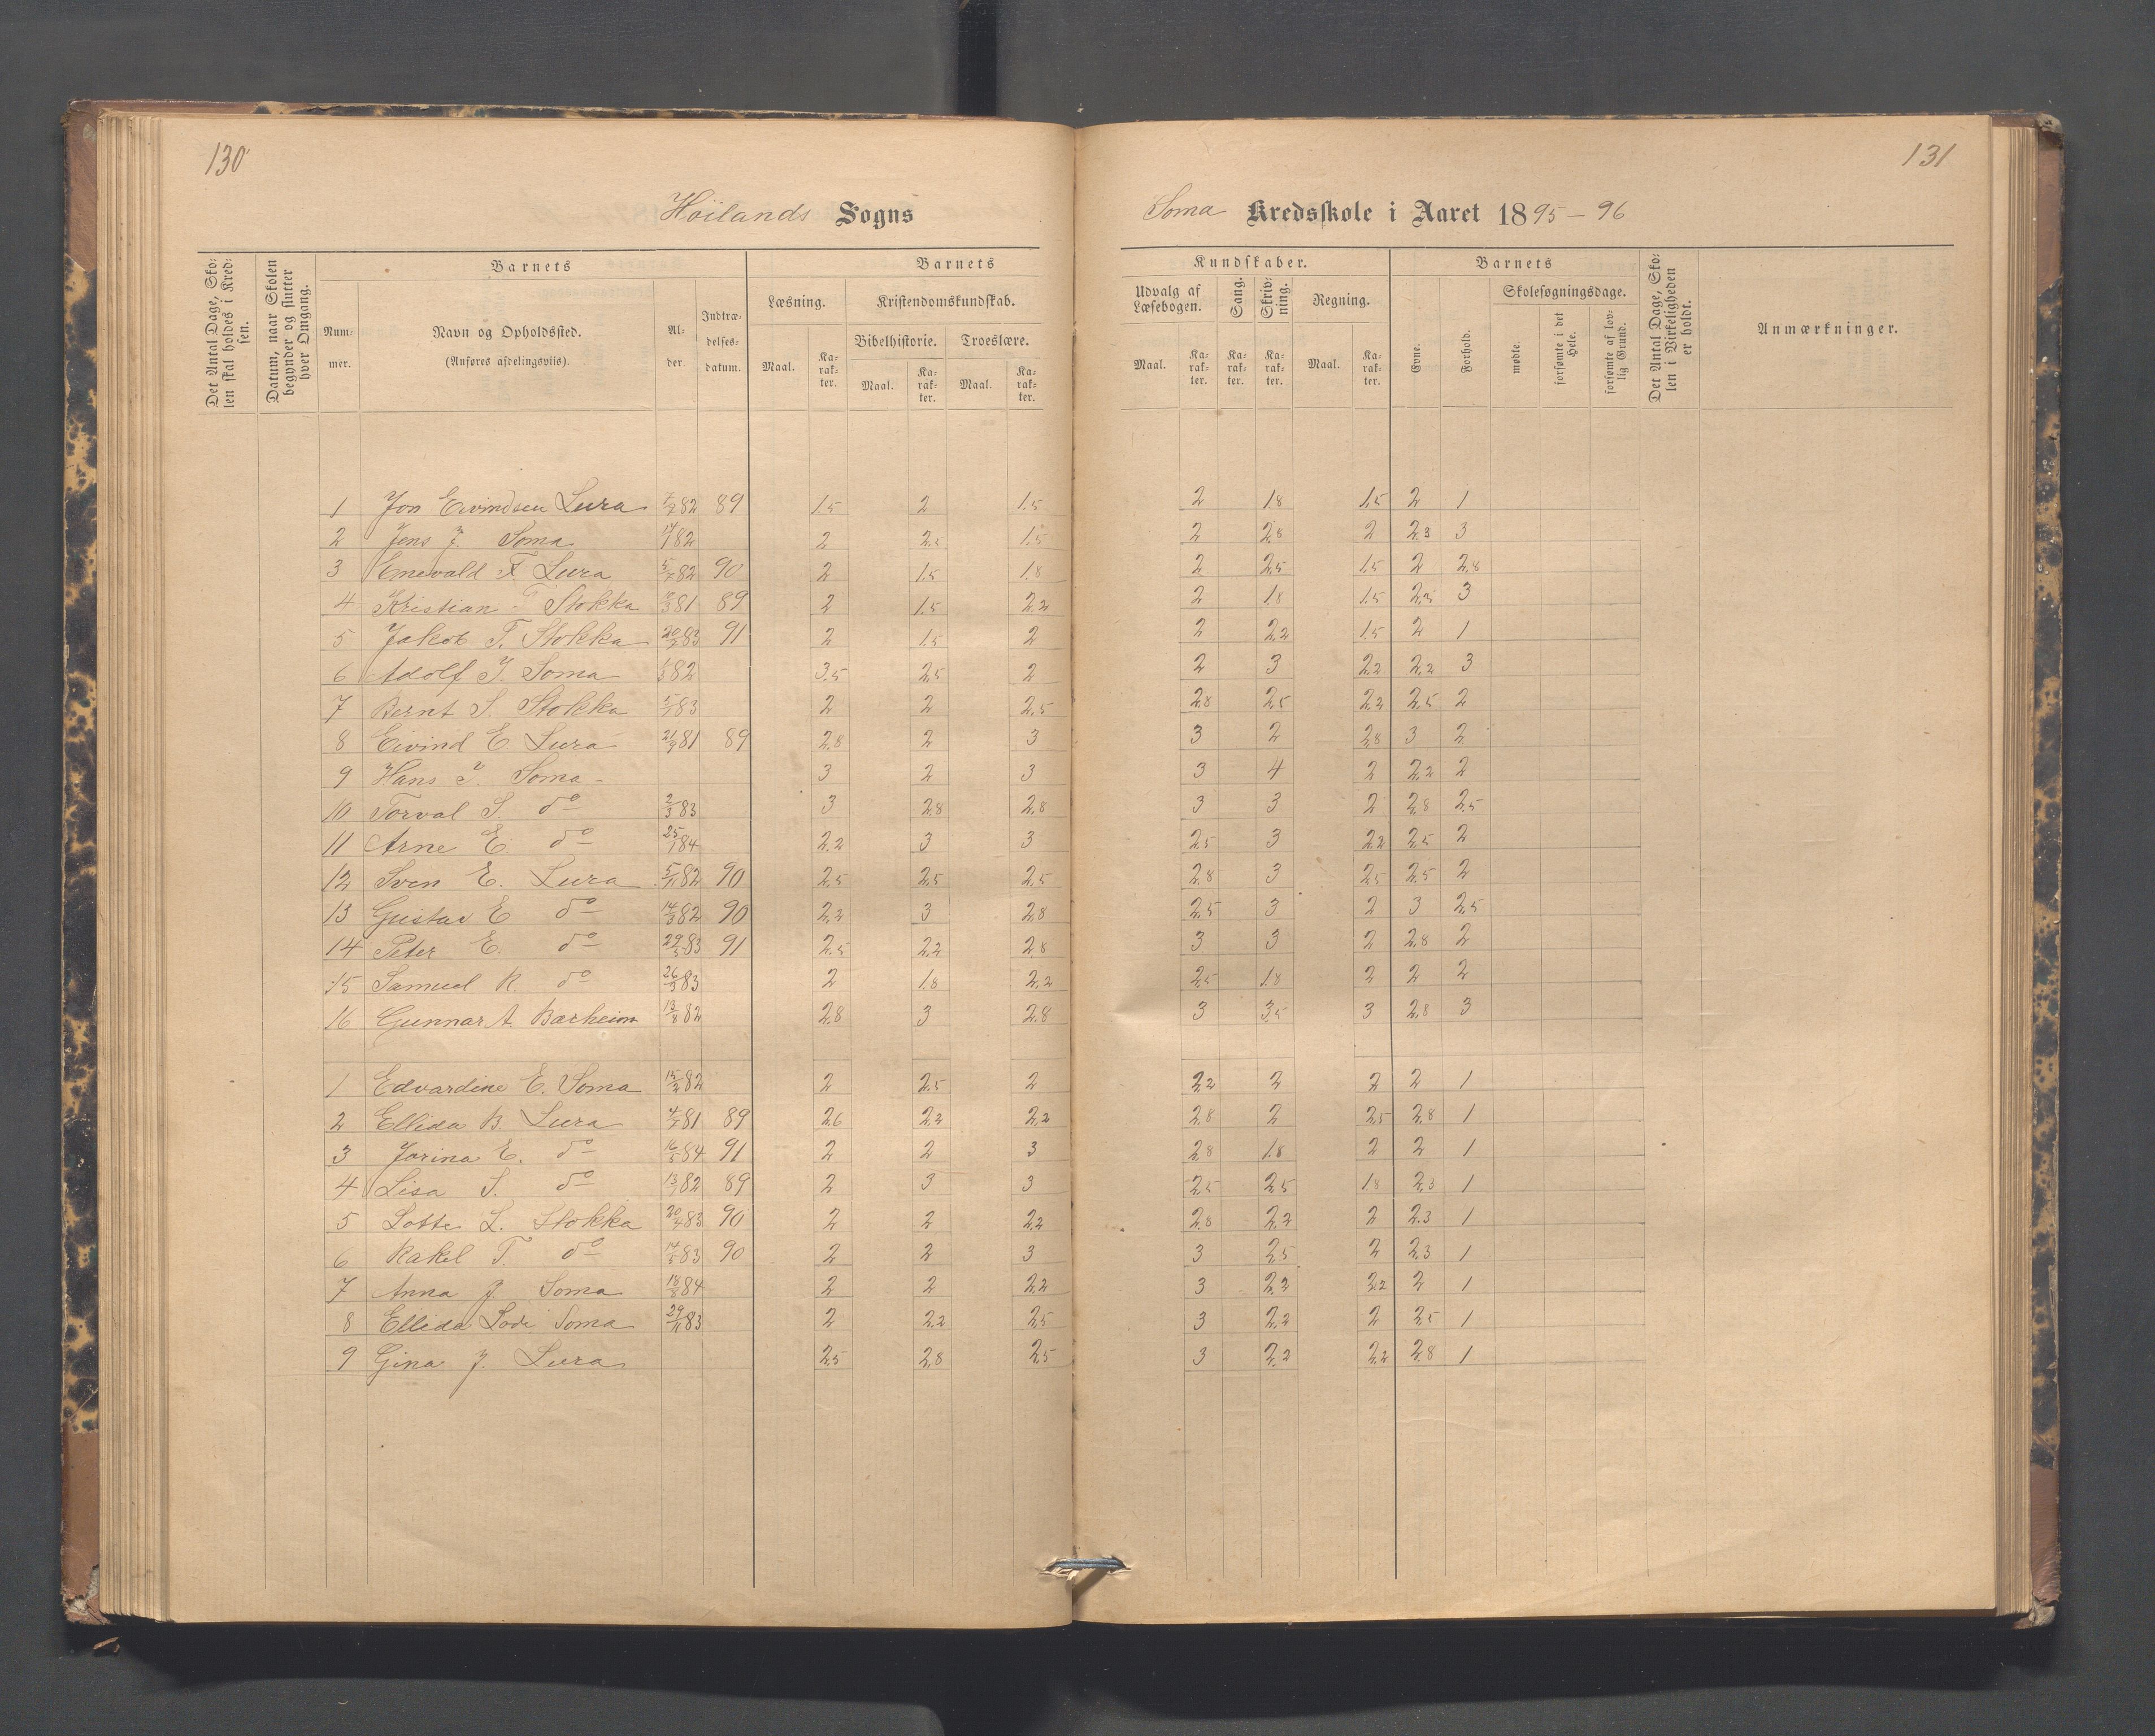 130
131
Höilands Sogns
Soma Kredsskole i Aaret 1895-96
Det Antal Dage, Skolen skal holdes i Kredsen.
Datum, naar Skolen begynder og slutter hver Omgang.
Barnets
Barnets
Kundskaber.
Barnets
Num-
mer.
Navn og Opholdssted.
(Anføres afdelingsviis).
Al-
der.
Indtræ-
delses-
datum.
Læsning.
Kristendomskundskab.
Bibelhistorie.
Troeslære.
Maal.
Ka-
rak-
ter.
Maal.
Ka-
rak-
ter.
Maal.
Ka-
rak-
ter.
Udvalg af
Læsebogen.
Sang.
Skriv-
ning.
Regning.
Maal.
Ka-
rak-
ter.
Ka-
rak-
ter.
Ka-
rak-
ter.
Maal.
Ka-
rak-
ter.
Evne.
Forhold.
Skolesøgningsdage.
mødte.
forsømte i det
Hele.
forsømte af lov-
lig Grund.
Det Antal Dage, Sko-
len i Virkeligheden
er holdt.
Anmærkninger.
1 Jon Eivindsen Lura 7/7 82 89 1.5 2 1.5 2 1.8 1.5 2 1
2 Jens J. Soma 82 2 2.5 1.5 2 2.8 2 2.3 3
3 Enevald F. Lura 82 90 2 1.5 1.8 2 2.5 1.5 2 2.8
4 Kristian Stokka 81 89 2 1.5 2.2 2 1.8 1.5 2.3 3
5 Jakob T. Stokka 83 91 2 1.5 2 2 2.2 1.5 2 1
6 Adolf J. Soma 82 3.5 2.5 2 2 3 2.2 2.2 3
7 Bernt S. Stokka 83 2 2 2.5 2.8 2.5 2.2 2.5 2
8 Eivind E. Lura 21/9 81 89 2.8 2 3 3 2 2.8 3 2
9 Hans J. Soma - 3 2 3 3 4 2 2.2 2
10 Torval S. do 2/3 83 3 2.8 2.8 3 3 2 2.8 2.5
11 Arne E. do 25/1 84 2.2 3 3 2.5 3 2.2 2.5 2
12 Sven E. Lura 5/11 82 90 2.5 2.5 2.5 2.8 3 2.5 2.5 2
13 Gustav E do 14/3 82 90 2.2 3 2.8 2.5 3 2 3 2.5
14 Peter E. do 29/5 83 91 2.5 2.2 2.8 3 3 2 2.8 2
15 Samuel R. do 26/3 83 2 1.8 2.2 2.5 1.8 2 2 2
16 Gunnar A. Barheim 13/8 82 2.8 3 2.8 3 3.5 3 2.8 3
1 Edvardine E. Soma 15/2 82 2 2.5 2 2.2 2 2 2 1
2 Ellida B. Lura 4/7 81 89 2.6 2.2 2.2 2.8 2 2.5 2.8 1
3 Jorina E. do 16/5 84 91 2 2 3 2.8 1.8 2 2 1
4 Lisa S. do 13/1 82 89 2 3 3 2.5 2.5 1.8 2.3 1
5 Lotte L. Stokka 20/4 83 90 2 2 2.2 2.8 2.2 2 2.3 1
6 Rakel T. do 14/5 83 90 2 2 3 3 2.5 2 2.3 1
7 Anna J. Soma 18/8 84 2 2 2.2 3 2.2 2.2 2 1
8 Ellida Lovi Soma 29/11 83 2 2.2 2.5 3 2.2 2 2.5 1
9 Gina J. Lura 2.5 2.8 2.5 3 2.2 2.2 2.8 1